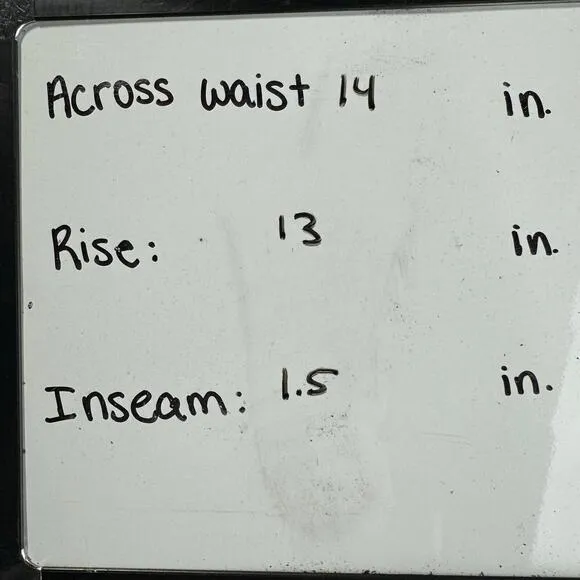 Across waist 14 in.
Rise: 13 in.
Inseam: 1.5 in.